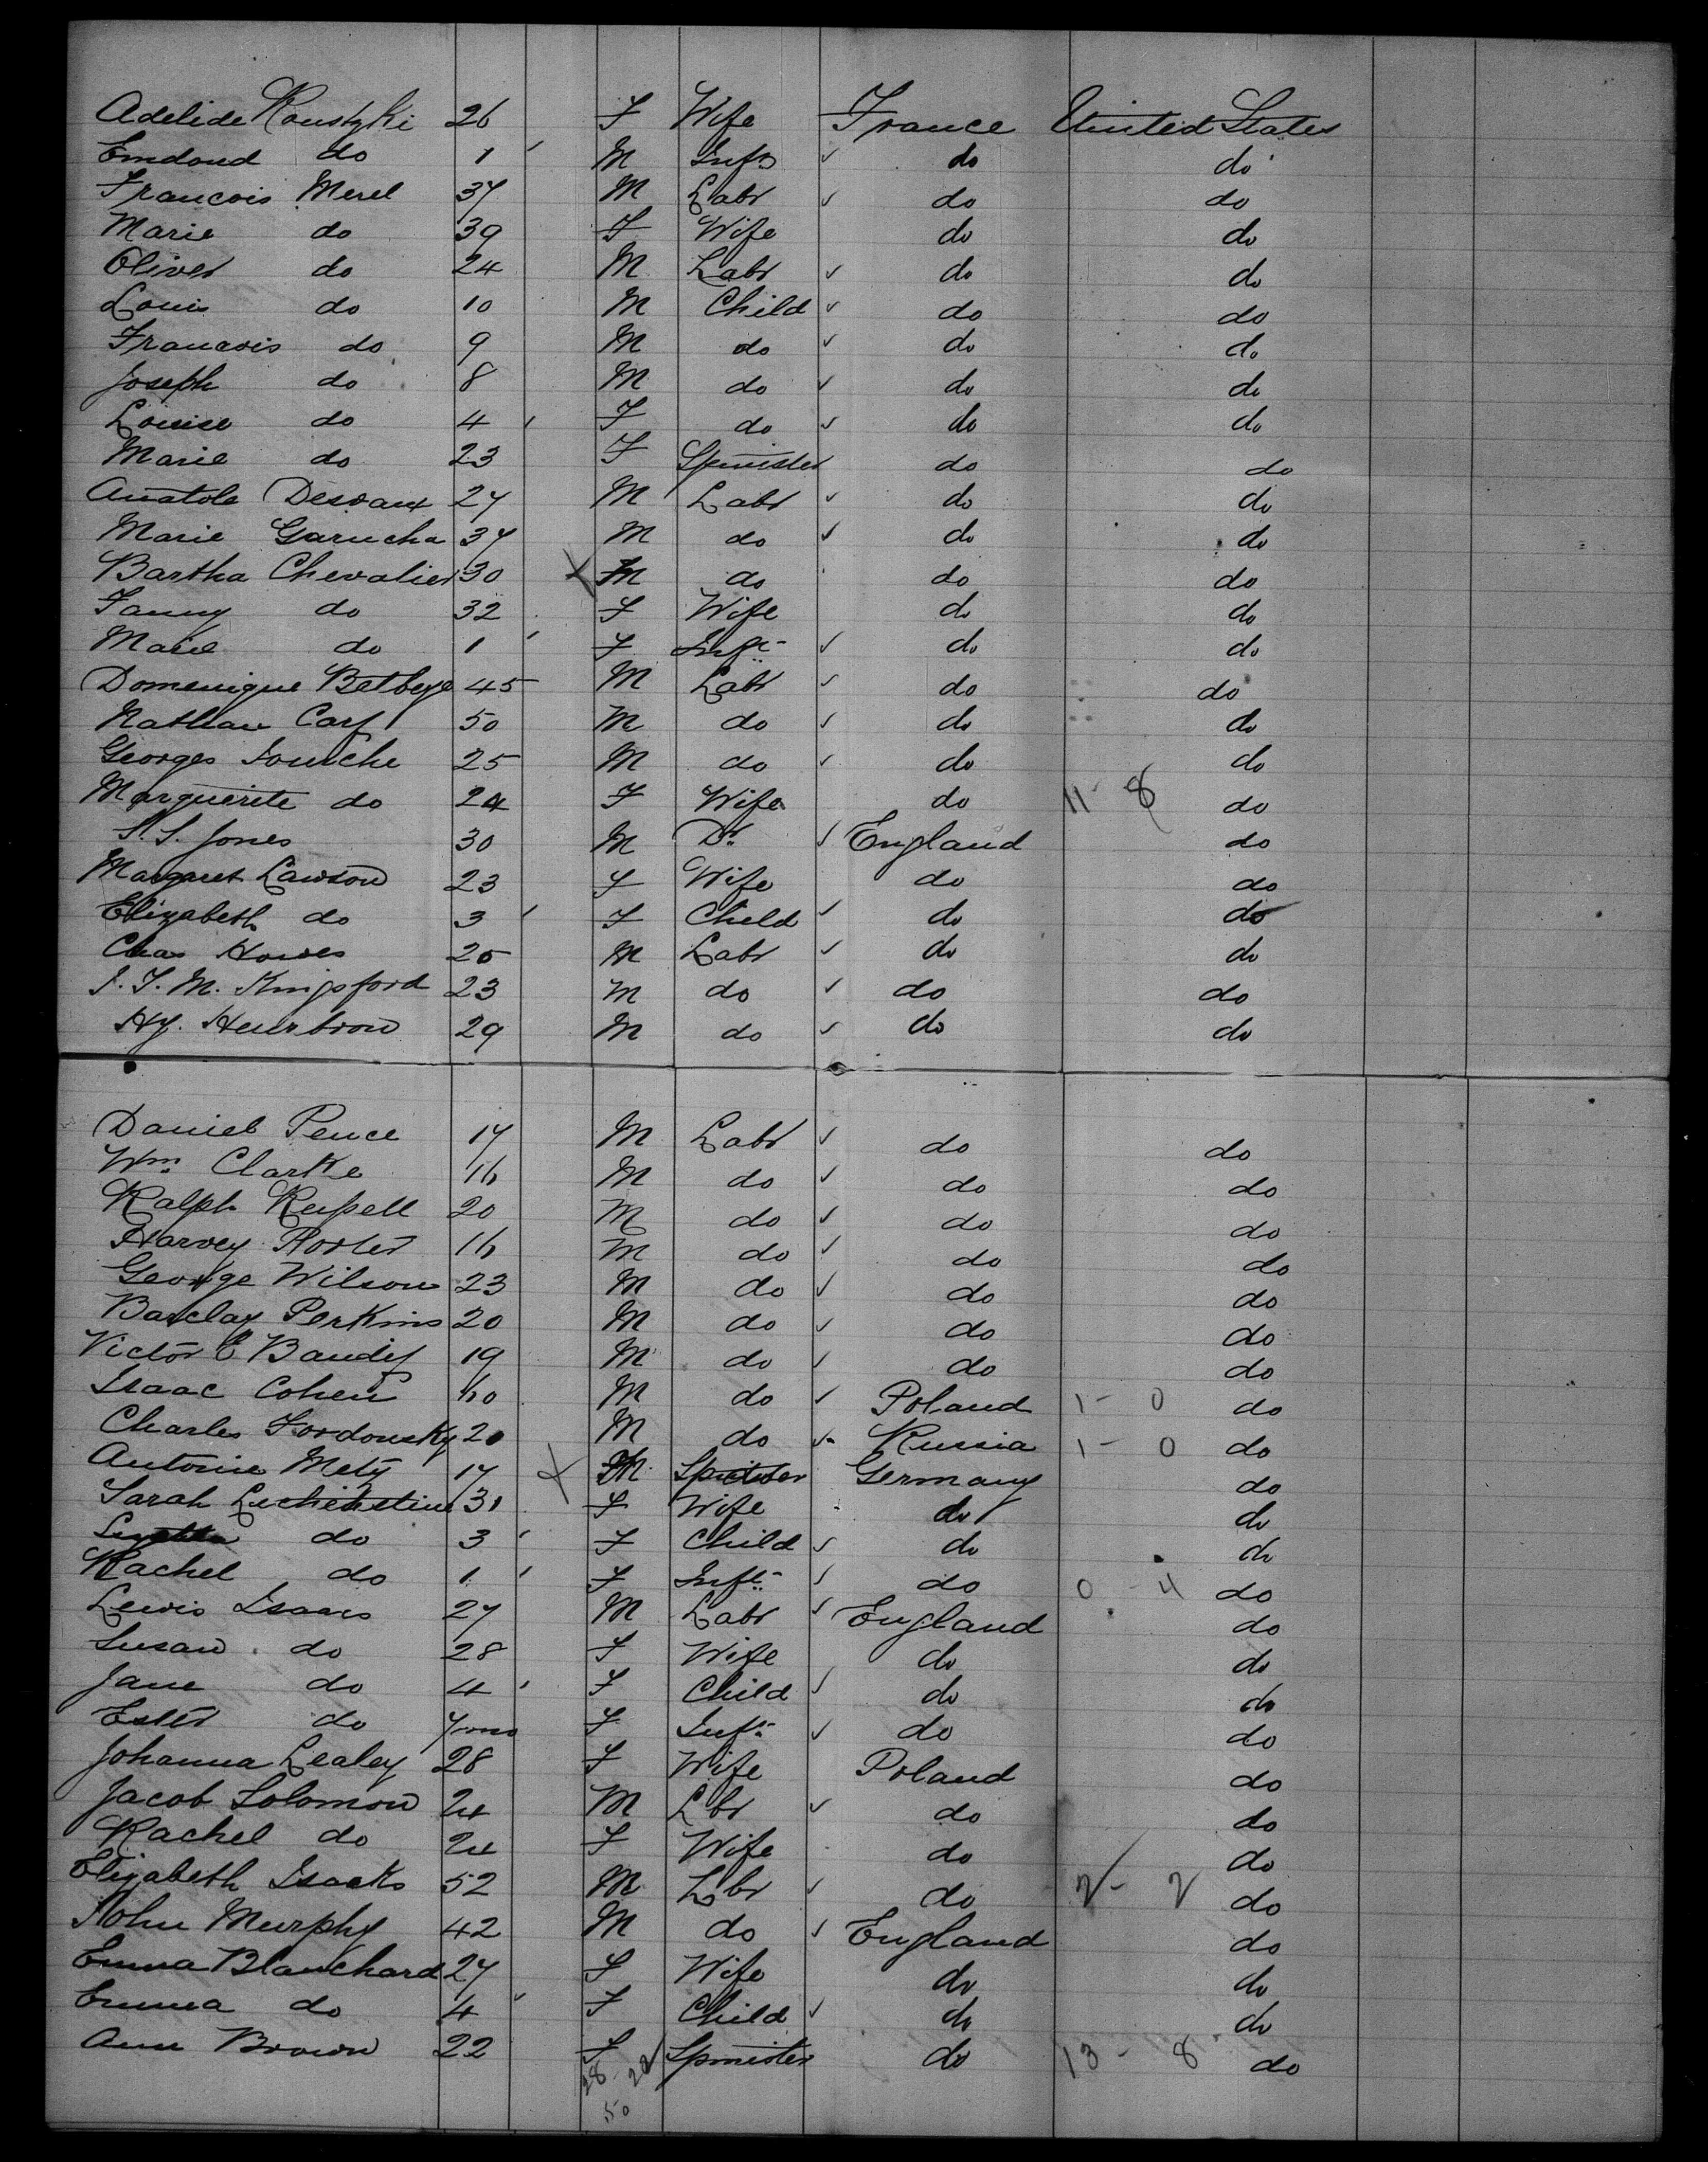 Adelide Konstzki 26 F Wife France United States
Emdoud do 1 M Inft do do
Francois Merel 37 M Labr do do
Marie do 39 F Wife do do
Oliver do 24 M Labr do do
Louis do 10 M Child do do
Francois do 9 M do do do
Joseph do 8 M do do do
Louise do 4 F do do do
Marie do 23 F Spinister do do
Anatole Desvaux 27 M Labr do do
Marie Garucha 37 M do do do
Bartha Chevalier 30 X M do do do
Fanny do 32 F Wife do do
Marie do 1 F Inft do do
Domenique Betbeye 45 M Labr do do
Nathan Carf 50 M do do do
Georges Fouiche 25 M do do do
Marguerite do 24 F Wife do 11 - 8 do
S. S. Jones 30 M Dr England do
Margaret Lawson 23 F Wife do do
Elizabeth do 3 F Child do do
Chas Howes 25 M Labr do do
J. T. M. Kingsford 23 M do do do
Hy. Heurbrow 29 M do do do
Daniel Pence 17 M Labr do do
Wm. Clarke 16 M do do do
Ralph Russell 20 M do do do
Harvey 16 M do do do
George Wilson 23 M do do do
Barclay Perkins 20 M do do do
Victor E Baudif 19 M do do do
Isaac Cohen 60 M do Poland 1 - 0 do
Charles Fordousky 20 M do Russia 1 - 0 do
Antonie Mety 17 X M Spinister Germany do
Sarah Lichenstine 31 F Wife do do
do 3 F Child do do
Rachel do 1 F Inft do 0 - 4 do
Lewis Isaacs 27 M Labr England do
Susan do 28 F Wife do do
Jane do 4 F Child do do
Ester do 7 mo F Inft do do
Johanna Lealey 28 F Wife Poland do
Jacob Solomon 24 M Lbr do do
Rachel do 24 F Wife do do
Elizabeth Isaaks 52 M Lbr do 2 - 2 do
John Murphy 42 M do England do
Emma Blanchard 27 F Wife do do
Emma do 4 F Child do do
Ann Brown 22 F Spinister do 13 - 8 do
28 - 22
50